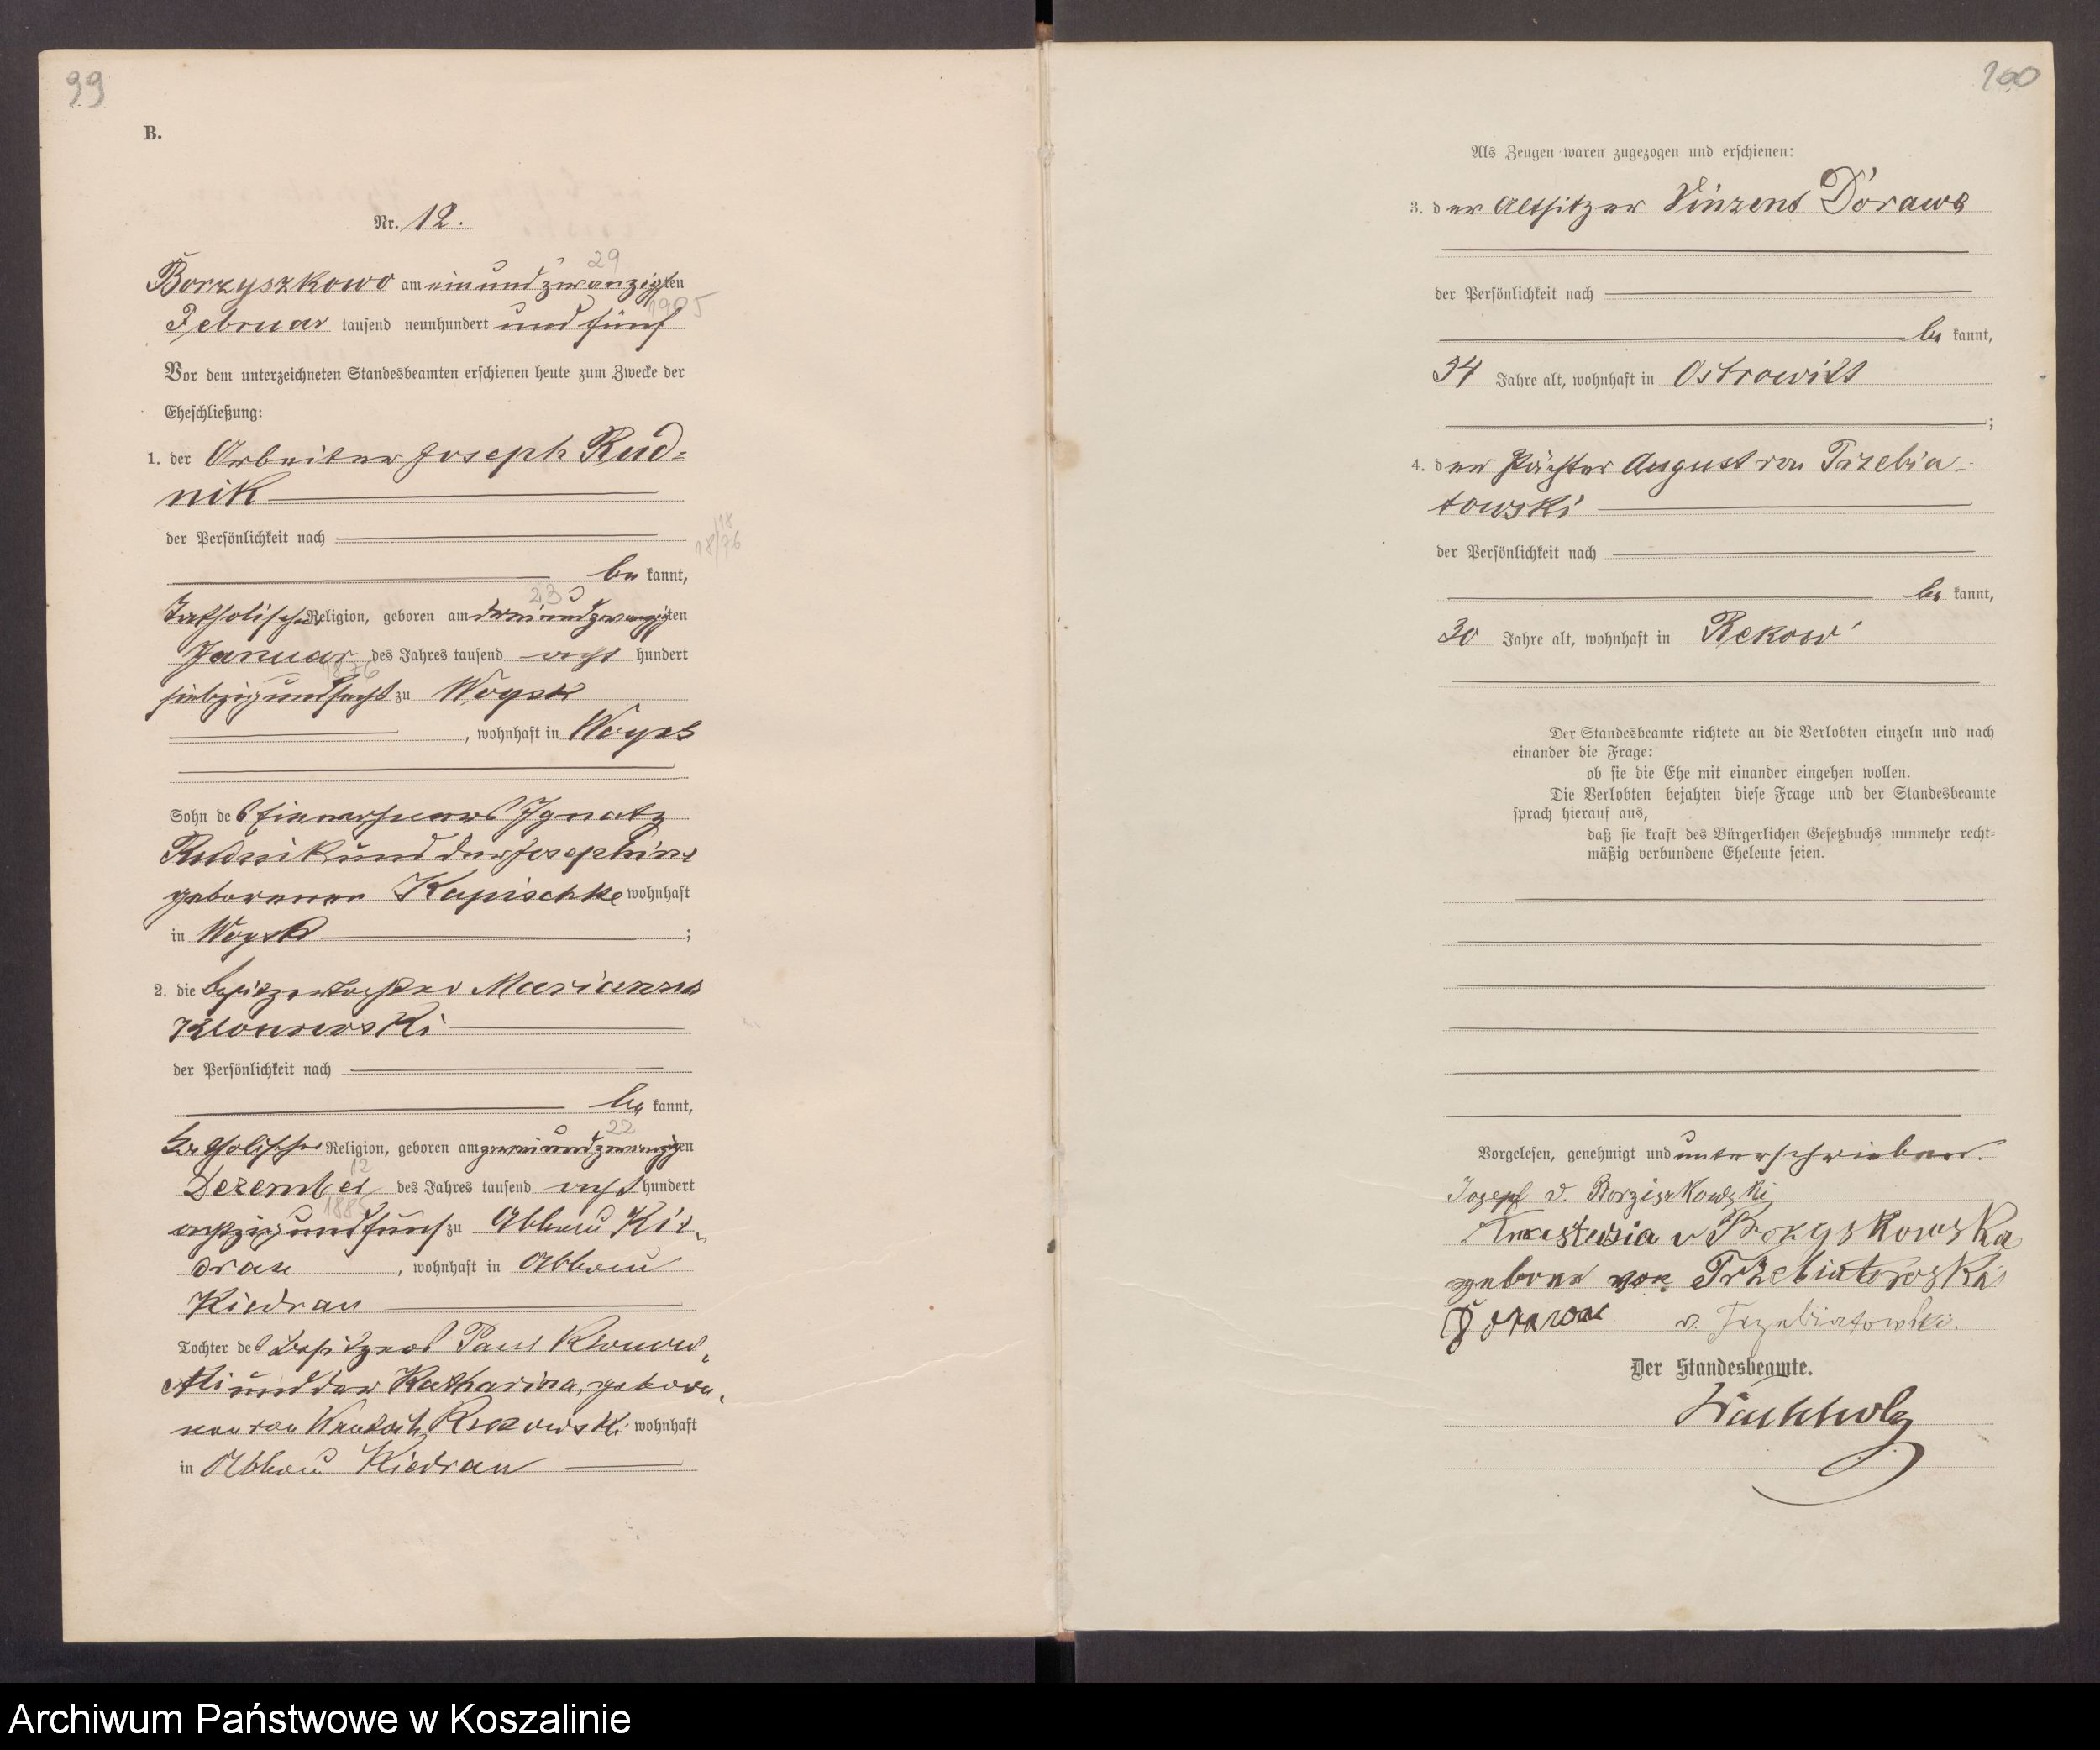 99
B.
Nr. 12.
29
Borzyszkowo am einundzwanzigsten
1905
Februar tausend neunhundert und fünf
Vor dem unterzeichneten Standesbeamten erschienen heute zum Zwecke der
Eheschließung:
1. der Arbeiter Joseph Rud-
nik
der Persönlichkeit nach
18
18/76
be kannt,
23
katholischer Religion, geboren am dreiundzwanzigsten
Januar des Jahres tausend acht hundert
1876
siebzig und sechs zu Woysk
, wohnhaft in Woysk
Sohn des Einwohners Ignatz
Rudnik und der Josephine
geborenen Kapischke wohnhaft
in Woysk ;
2. die Besitzertochter Marianna
Klonowski
der Persönlichkeit nach
be kannt,
22
katholischer Religion, geboren am zweiundzwanzigsten
12
Dezember des Jahres tausend acht hundert
1885
achtzig und fünf zu Abbau Kie-
drau , wohnhaft in Abbau
Kiedrau
Tochter des Besitzers Paul Klonow-
ski und der Katharina, gebore-
nen von Rekowski wohnhaft
in Abbau Kiedrau
100
Als Zeugen waren zugezogen und erschienen:
3. der Altsitzer Vinzens Dorawa
der Persönlichkeit nach
be kannt,
54 Jahre alt, wohnhaft in Ostrowitt
;
4. der Pächter August von Trzebia-
towski
der Persönlichkeit nach
be kannt,
30 Jahre alt, wohnhaft in Rekow
Der Standesbeamte richtete an die Verlobten einzeln und nach
einander die Frage:
ob sie die Ehe mit einander eingehen wollen.
Die Verlobten bejahten diese Frage und der Standesbeamte
sprach hierauf aus,
daß sie kraft des Bürgerlichen Gesetzbuchs nunmehr recht-
mäßig verbundene Eheleute seien.
Vorgelesen, genehmigt und unterschrieben.
Josepf v. Borziszkowski
Anastasia v
geborne von Trzebiatowska
Dorawa v. Trzebiatowski.
Der Standesbeamte.
Archiwum Państwowe w Koszalinie